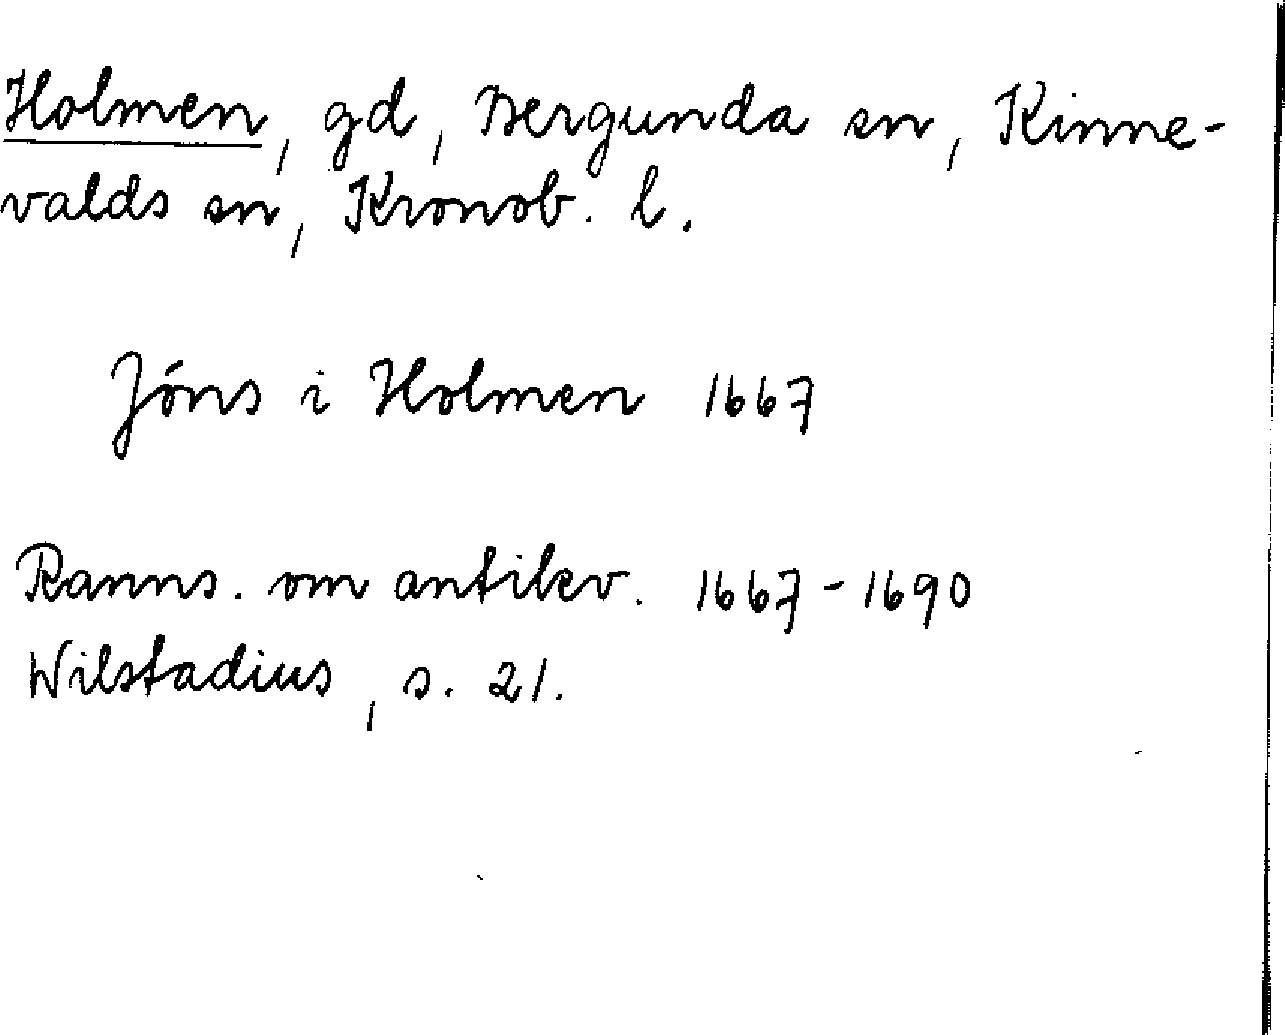 Holmen, gd, Bergunda sn, Kinne-
valds sn, Kronob. l.
Jöns i Holmen 1667
Ranns. om antikv. 1667-1690
Wilstadius, s. 21.